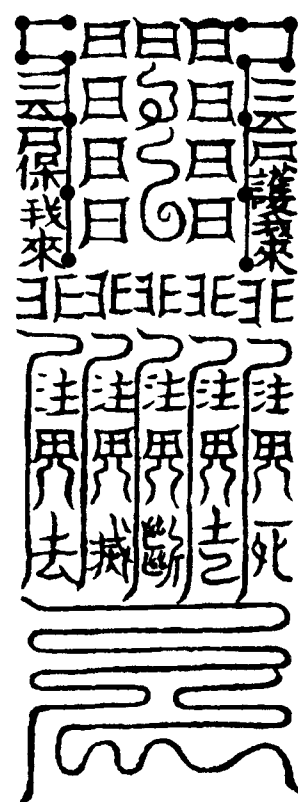 三
護我來
日日日日
日
日日日日
三
保我來
非非非非非
注鬼死
注鬼
注鬼斷
注鬼滅
注鬼去